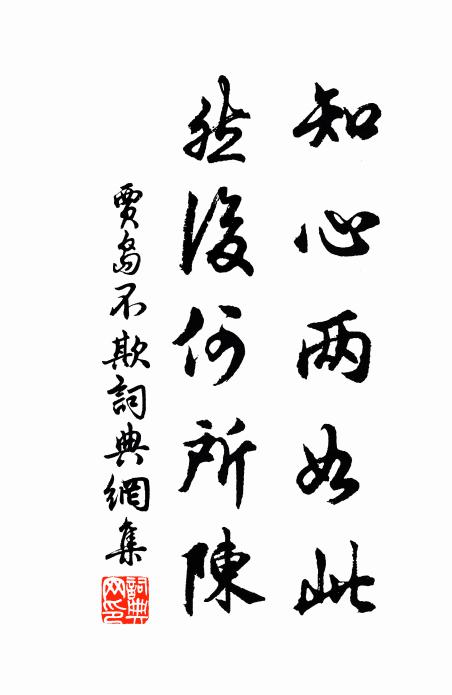 知心两如此
然後何所陳
賈島不欺詞典網集
詞典网印